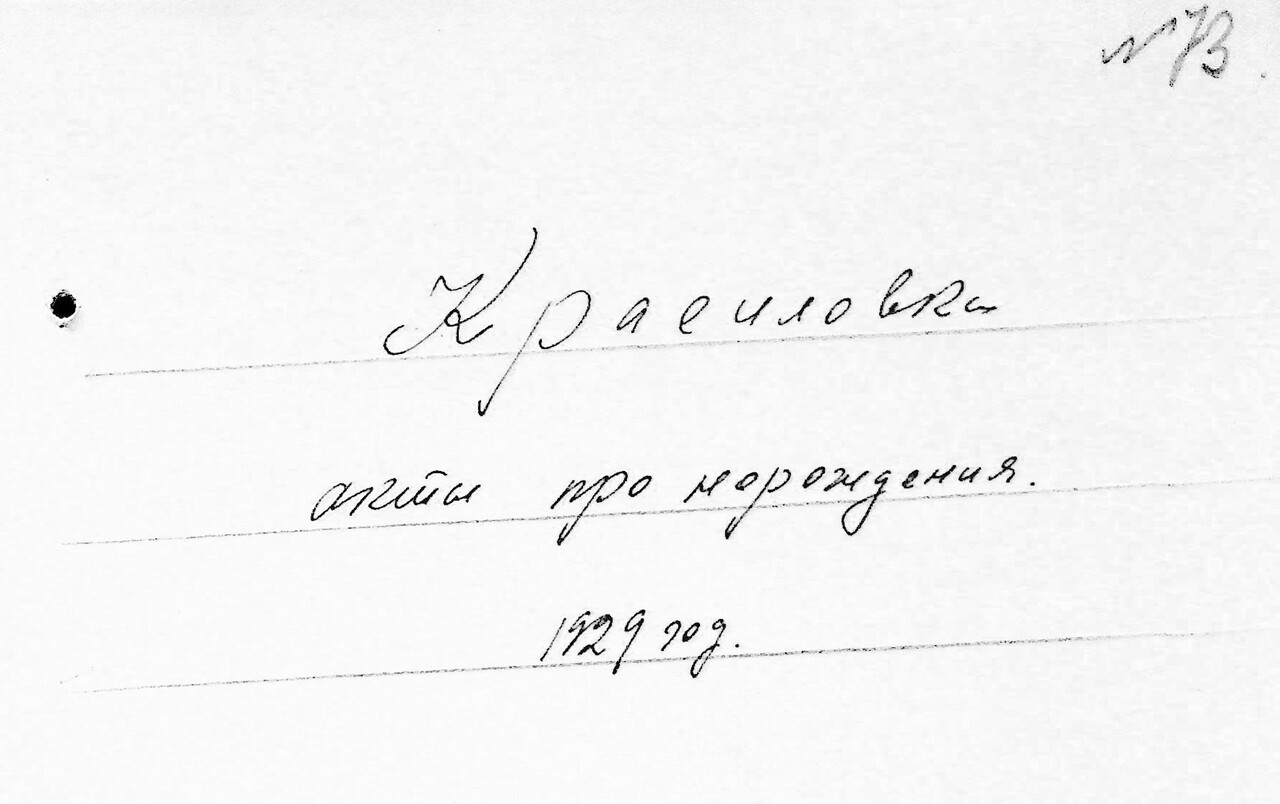 №73
Красиловка
акты про нарождения.
1929 год.